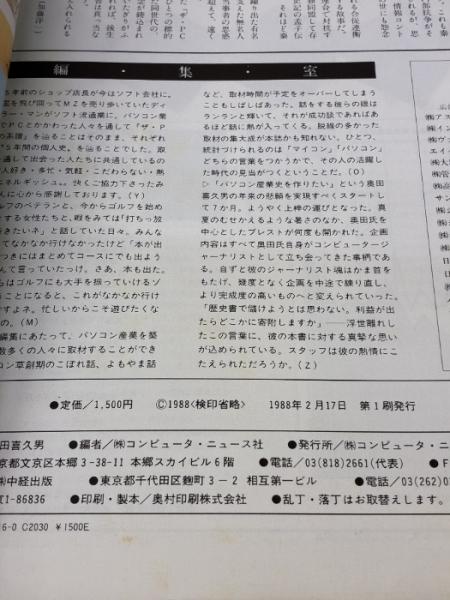 編・集・室
5年前のショップ店長が今はソフト会社に。
を飛び回ってMZを売り歩いていたディ
ラー・マンがソフト流通業に。パソコン業
でPCとかかわった人々を通して「ザ・P
の系譜」を辿ることはそのまま、それぞれ
"5年間の個人史。を辿ることでした。取
通して出会った人たちに共通しているの
人好き・多忙・気軽・こだわらない・熱
エネルギッシュ。。快くご協力下さったみ
んに心から感謝しております。(Y)
ルフのベテランと、今からゴルフを始め
とする女性たちと、暇をみては「打ちっ放
行きたいネ」と話していた日々。みんな
てなかなか行けなかったけど「本が出
つきにはまとめてコースにでも出よう
んて言っていたっけ。さあ、本も出た。
らはゴルフにも大手を振っていけるゾ
うことになると、これがなかなか行け
すよネ。忙しいからこそ遊びたくな
の。(M)
編集にあたって、パソコン産業を築
数多くの人々に取材することができ
コン草創期のこぼれ話、よもやま話
など、取材時間が予定をオーバーしてしまう
こともしばしばあった。話をする彼らの眼は
ランランと輝いて、それが成功談であればあ
るほど話に熱が入ってくる。脱線の多かった
取材の集大成が本誌かも知れない。ひとつ、
統計づけられるのは「マイコン」「パソコン」
どちらの言葉をつかうかで、その人の活躍し
た時代の見当がつくということだ。(O)
▷「パソコン産業史を作りたい」という奥田
喜久男の年来の悲願を実現すべくスタートし
て7か月。ようやく上梓の運びとなった。真
夏のむせかえるような暑さのなか、奥田氏を
中心としたブレストが何度も開かれた。企画
内容はすべて奥田氏自身がコンピュータージ
ャーナリストとして立ち会ってきた事柄であ
る。自ずと彼のジャーナリスト魂はかま首を
もたげ、幾度となく企画を中途で練り直し、
より完成度の高いものへと変えられていった。
「歴史書で儲けようとは思わない。利益が出
たらどこかに寄附しますか」——浮世離れし
たこの言葉に、彼の本書に対する真摯な思い
が込められている。スタッフは彼の熱情にこ
たえられただろうか。(Z)
●定価/1,500円 ©1988<検印省略> 1988年2月17日 第1刷発行
田喜久男 ●編者/㈱コンピュータ・ニュース社 ●発行所/㈱コンピュータ・ニ
京都文京区本郷3-38-11 本郷スカイビル6階 ●電話/03(818)2661(代表) ●F
㈱中経出版 ●東京都千代田区麹町3-2 相互第一ビル ●電話/03(262)0
1-86836 ●印刷・製本/奥村印刷株式会社 ●乱丁・落丁はお取替えします。
6-0 C2030 ¥1500E